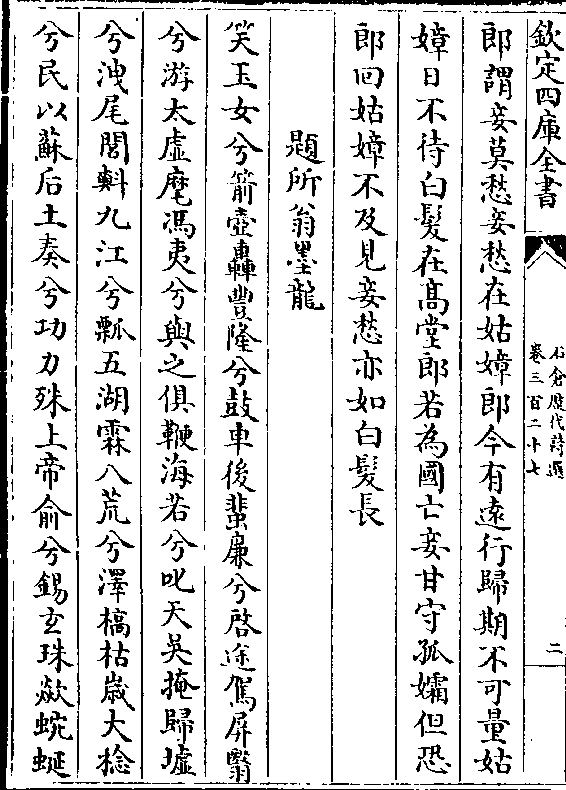 欽定四庫全書
石倉歷代詩選
卷三百二十七
二
郎謂妾莫愁妾愁在姑嫜郎今有遠行歸期不可量姑
嫜日不待白髮在高堂郎若為國亡妾甘守孤孀但恐
郎回姑嫜不及見妾愁亦如白髮長
題所翁墨龍
笑玉女兮箭壺轟豐隆兮鼓車後蜚廉兮啓途駕屏翳
兮游太虛麾馮夷兮與之俱鞭海若兮叱天吳掩歸墟
兮洩尾閭㪺九江兮瓢五湖霖八荒兮澤槁枯嵗大稔
兮民以蘇后土奏兮功力殊上帝俞兮錫玄珠歘蜿蜒